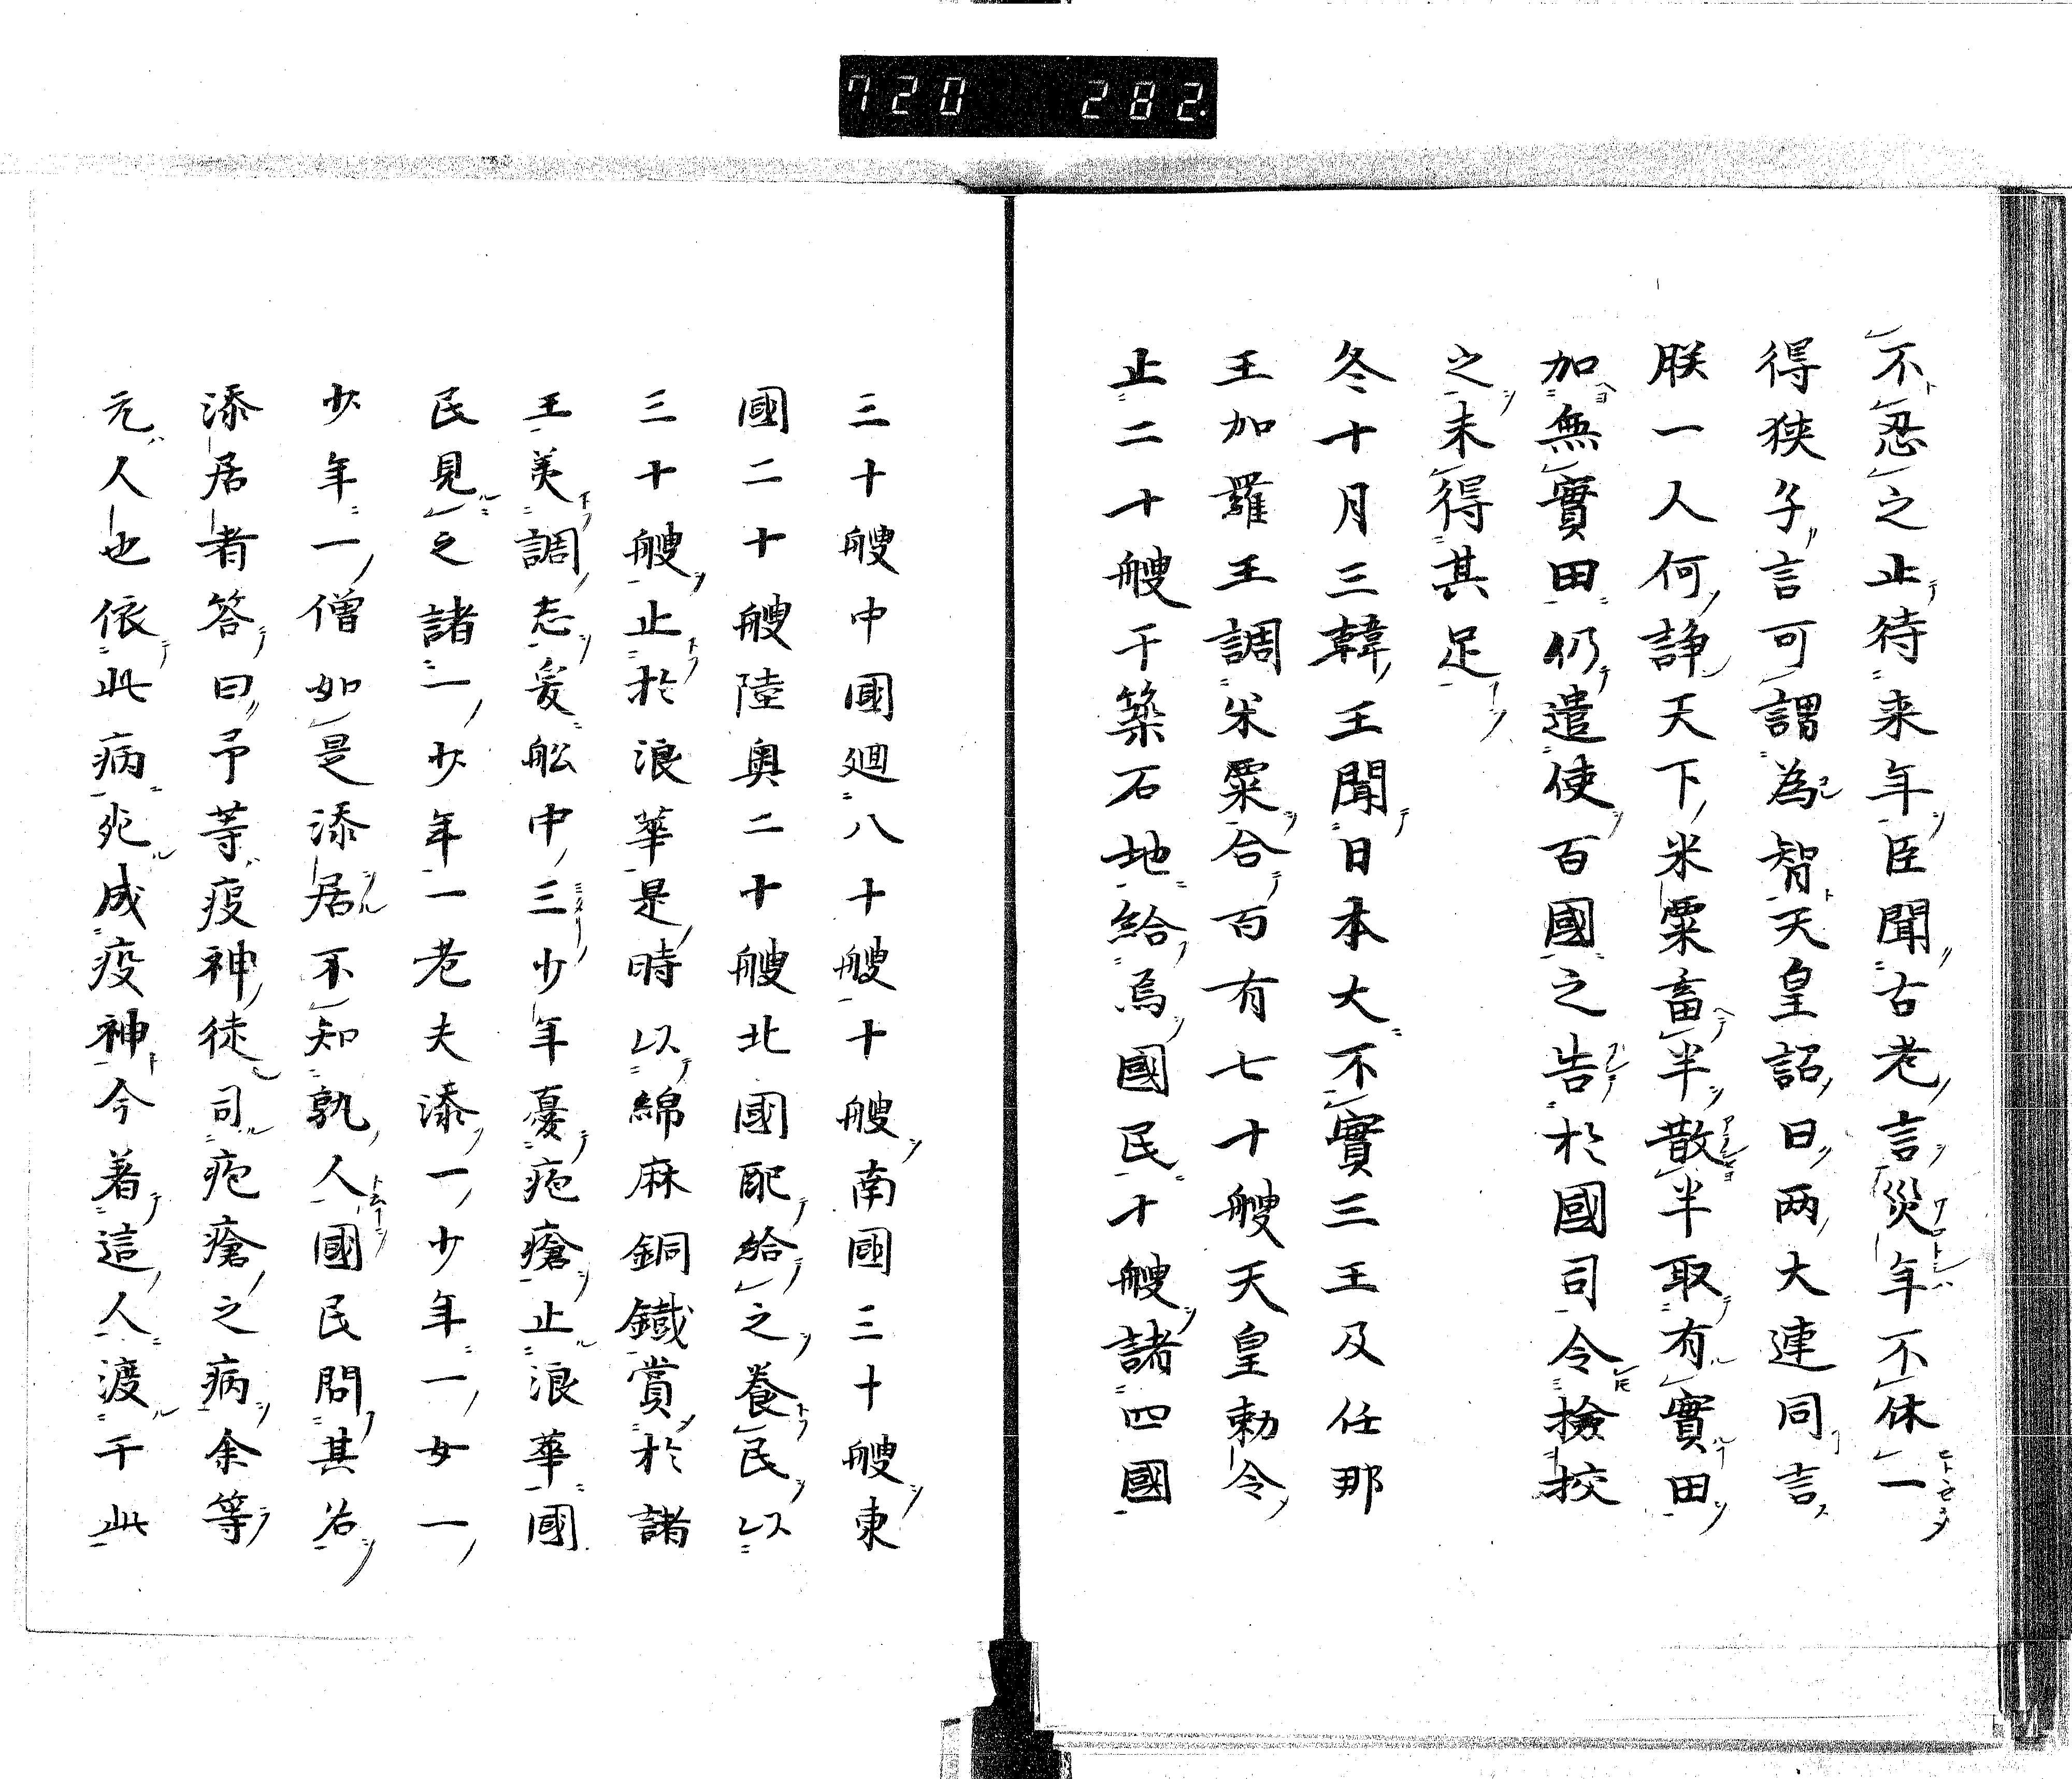 720 282.
不忍之止待来年臣聞古老言災年不休一
得狭子言可謂為智天皇詔曰两大連同言
朕一人何諍天下米粟畜半散半取有實田
加無實田仍遣使百國之告於國司令撿挍
之未得其足
冬十月三韓王聞日本大不實三王及任那
王加羅王調米粟合百有七十艘天皇勅令
止二十艘干築石地給為國民十艘諸四國
三十艘中國廻八十艘十艘南國三十艘東
國二十艘陸奥二十艘北國配給之養民以
三十艘止於浪華是時以綿麻銅鐵賞於諸
王美調志爰舩中三少年憂疱瘡止浪華國
民見之諸一少年一老夫添一少年一女一
少年一僧如是添居不知孰人國民問其名
添居者答曰予等疫神徒司疱瘡之病余等
元人也依此病死成疫神今着這人渡干此